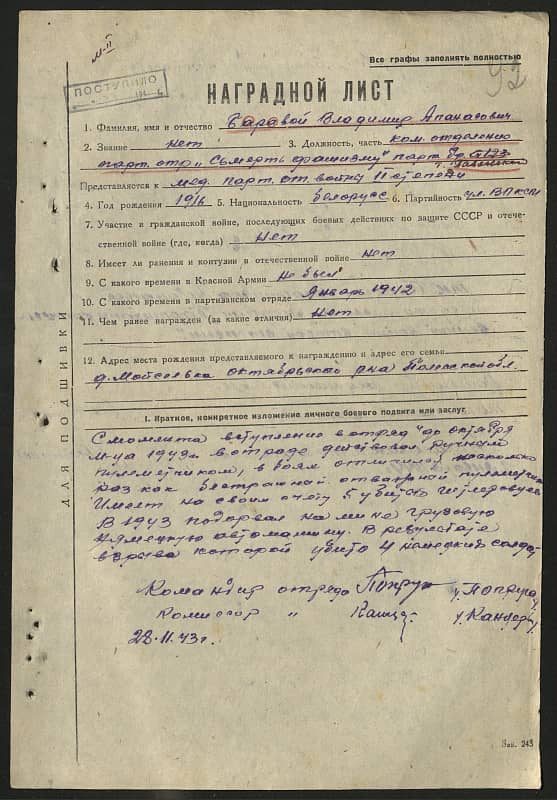 М-II
Все графы заполнять полностью
ПОСТУПИЛО
92
НАГРАДНОЙ ЛИСТ
1. Фамилия, имя и отчество Баравой Владимир Апанасович
2. Звание нет 3. Должность, часть ком. отделения
парт. отр „Смерть фашизму" парт. бр. №123
Представляется к мед. парт. от. войны II степени
4. Год рождения 1916 5. Национальность белорусс 6. Партийность чл. ВЛКСМ
7. Участие в гражданской войне, последующих боевых действиях по защите СССР и отече-
ственной войне (где, когда) нет
8. Имеет ли ранения и контузии в отечественной войне нет
9. С какого времени в Красной Армии не был
10. С какого времени в партизанском отряде Январь 1942
11. Чем ранее награжден (за какие отличия) нет
12. Адрес места рождения представляемого к награждению и адрес его семьи
д. Мойсеевка октябрьского р-на Полесской обл.
ДЛЯ ПОДШИВКИ
I. Краткое, конкретное изложение личного боевого подвига или заслуг
С момента вступления в отряд до октября
м-ца 1943г. в отряде действовал ручным
пулеметчиком, в боях отличился несколько
раз как бесстрашной отважной пулеметчик
Имеет на своим счету 5 убитых гитлеровцев
В 1943 подорвал на мине грузовую
немецкую автомашину. В результате
взрыва которой убито 4 немецких солдат
Командир отряда
Комиссар "
28.11.43г.
Зак. 243